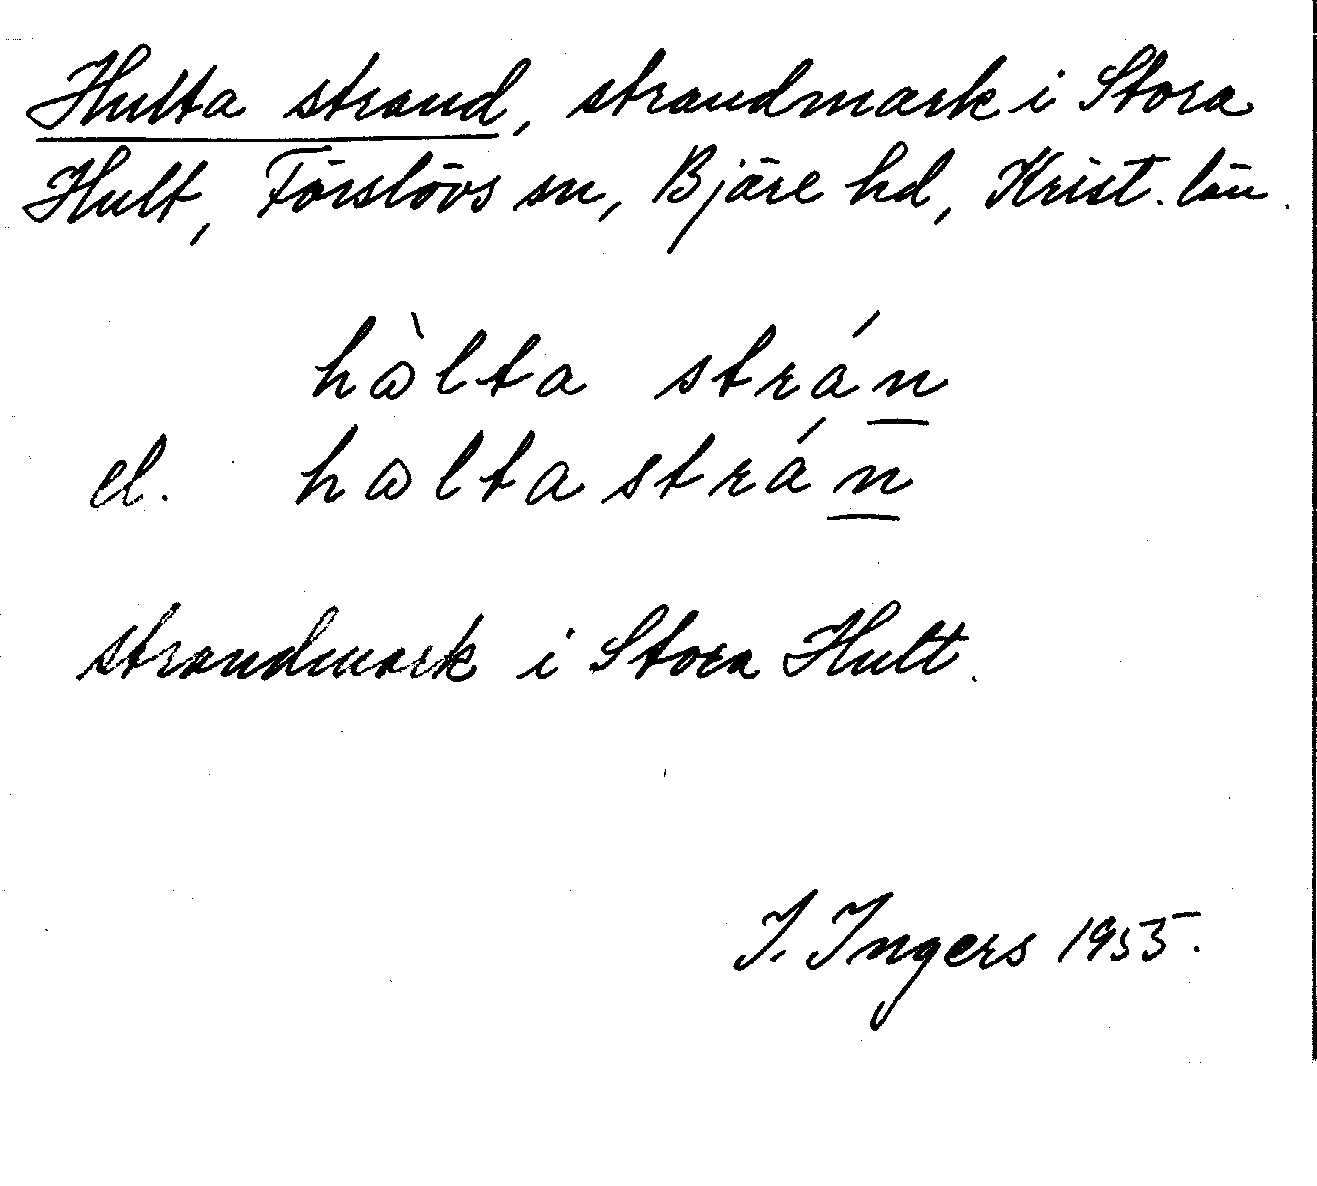 Hulta strand, strandmark i Stora
Hult, Förslövs sn, Bjäre hd, Krist. län.
hὼlta strán
el. hωltastrán
strandmark i Stora Hult.
I. Ingers 1955.